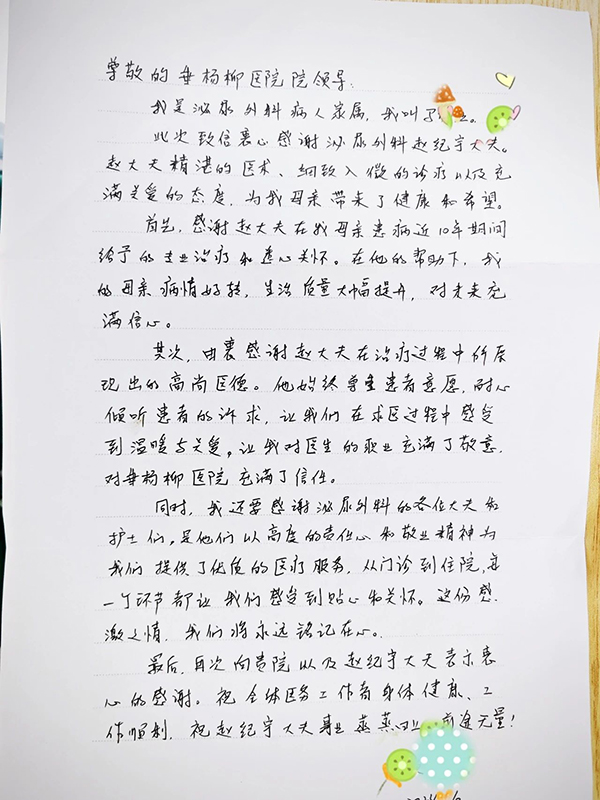 尊敬的垂杨柳医院院领导:
我是泌尿外科病人家属,我叫
此次致信衷心感谢泌尿外科赵纪宇大夫。
赵大夫精湛的医术、细致入微的诊疗以及充
满关爱的态度,为我母亲带来了健康和希望。
首先,感谢赵大夫在我母亲患病近10年期间
给予的专业治疗和悉心关怀。在他的帮助下,我
的母亲病情好转,生活质量大幅提升,对未来充
满信心。
其次,由衷感谢赵大夫在治疗过程中所展
现出的高尚医德。他始终尊重患者意愿,耐心
倾听患者的诉求,让我们在求医过程中感受
到温暖与关爱。让我对医生的职业充满了敬意,
对垂杨柳医院充满了信任。
同时,我还要感谢泌尿外科的各位大夫和
护士们,是他们以高度的责任心和敬业精神为
我们提供了优质的医疗服务,从门诊到住院,每
一个环节都让我们感受到贴心和关怀。这份感
激之情,我们将永远铭记在心。
最后,再次向贵院以及赵纪宇大夫表示衷
心的感谢。祝全体医务工作者身体健康、工
作顺利,祝赵纪宇大夫事业蒸蒸日上,前途无量!